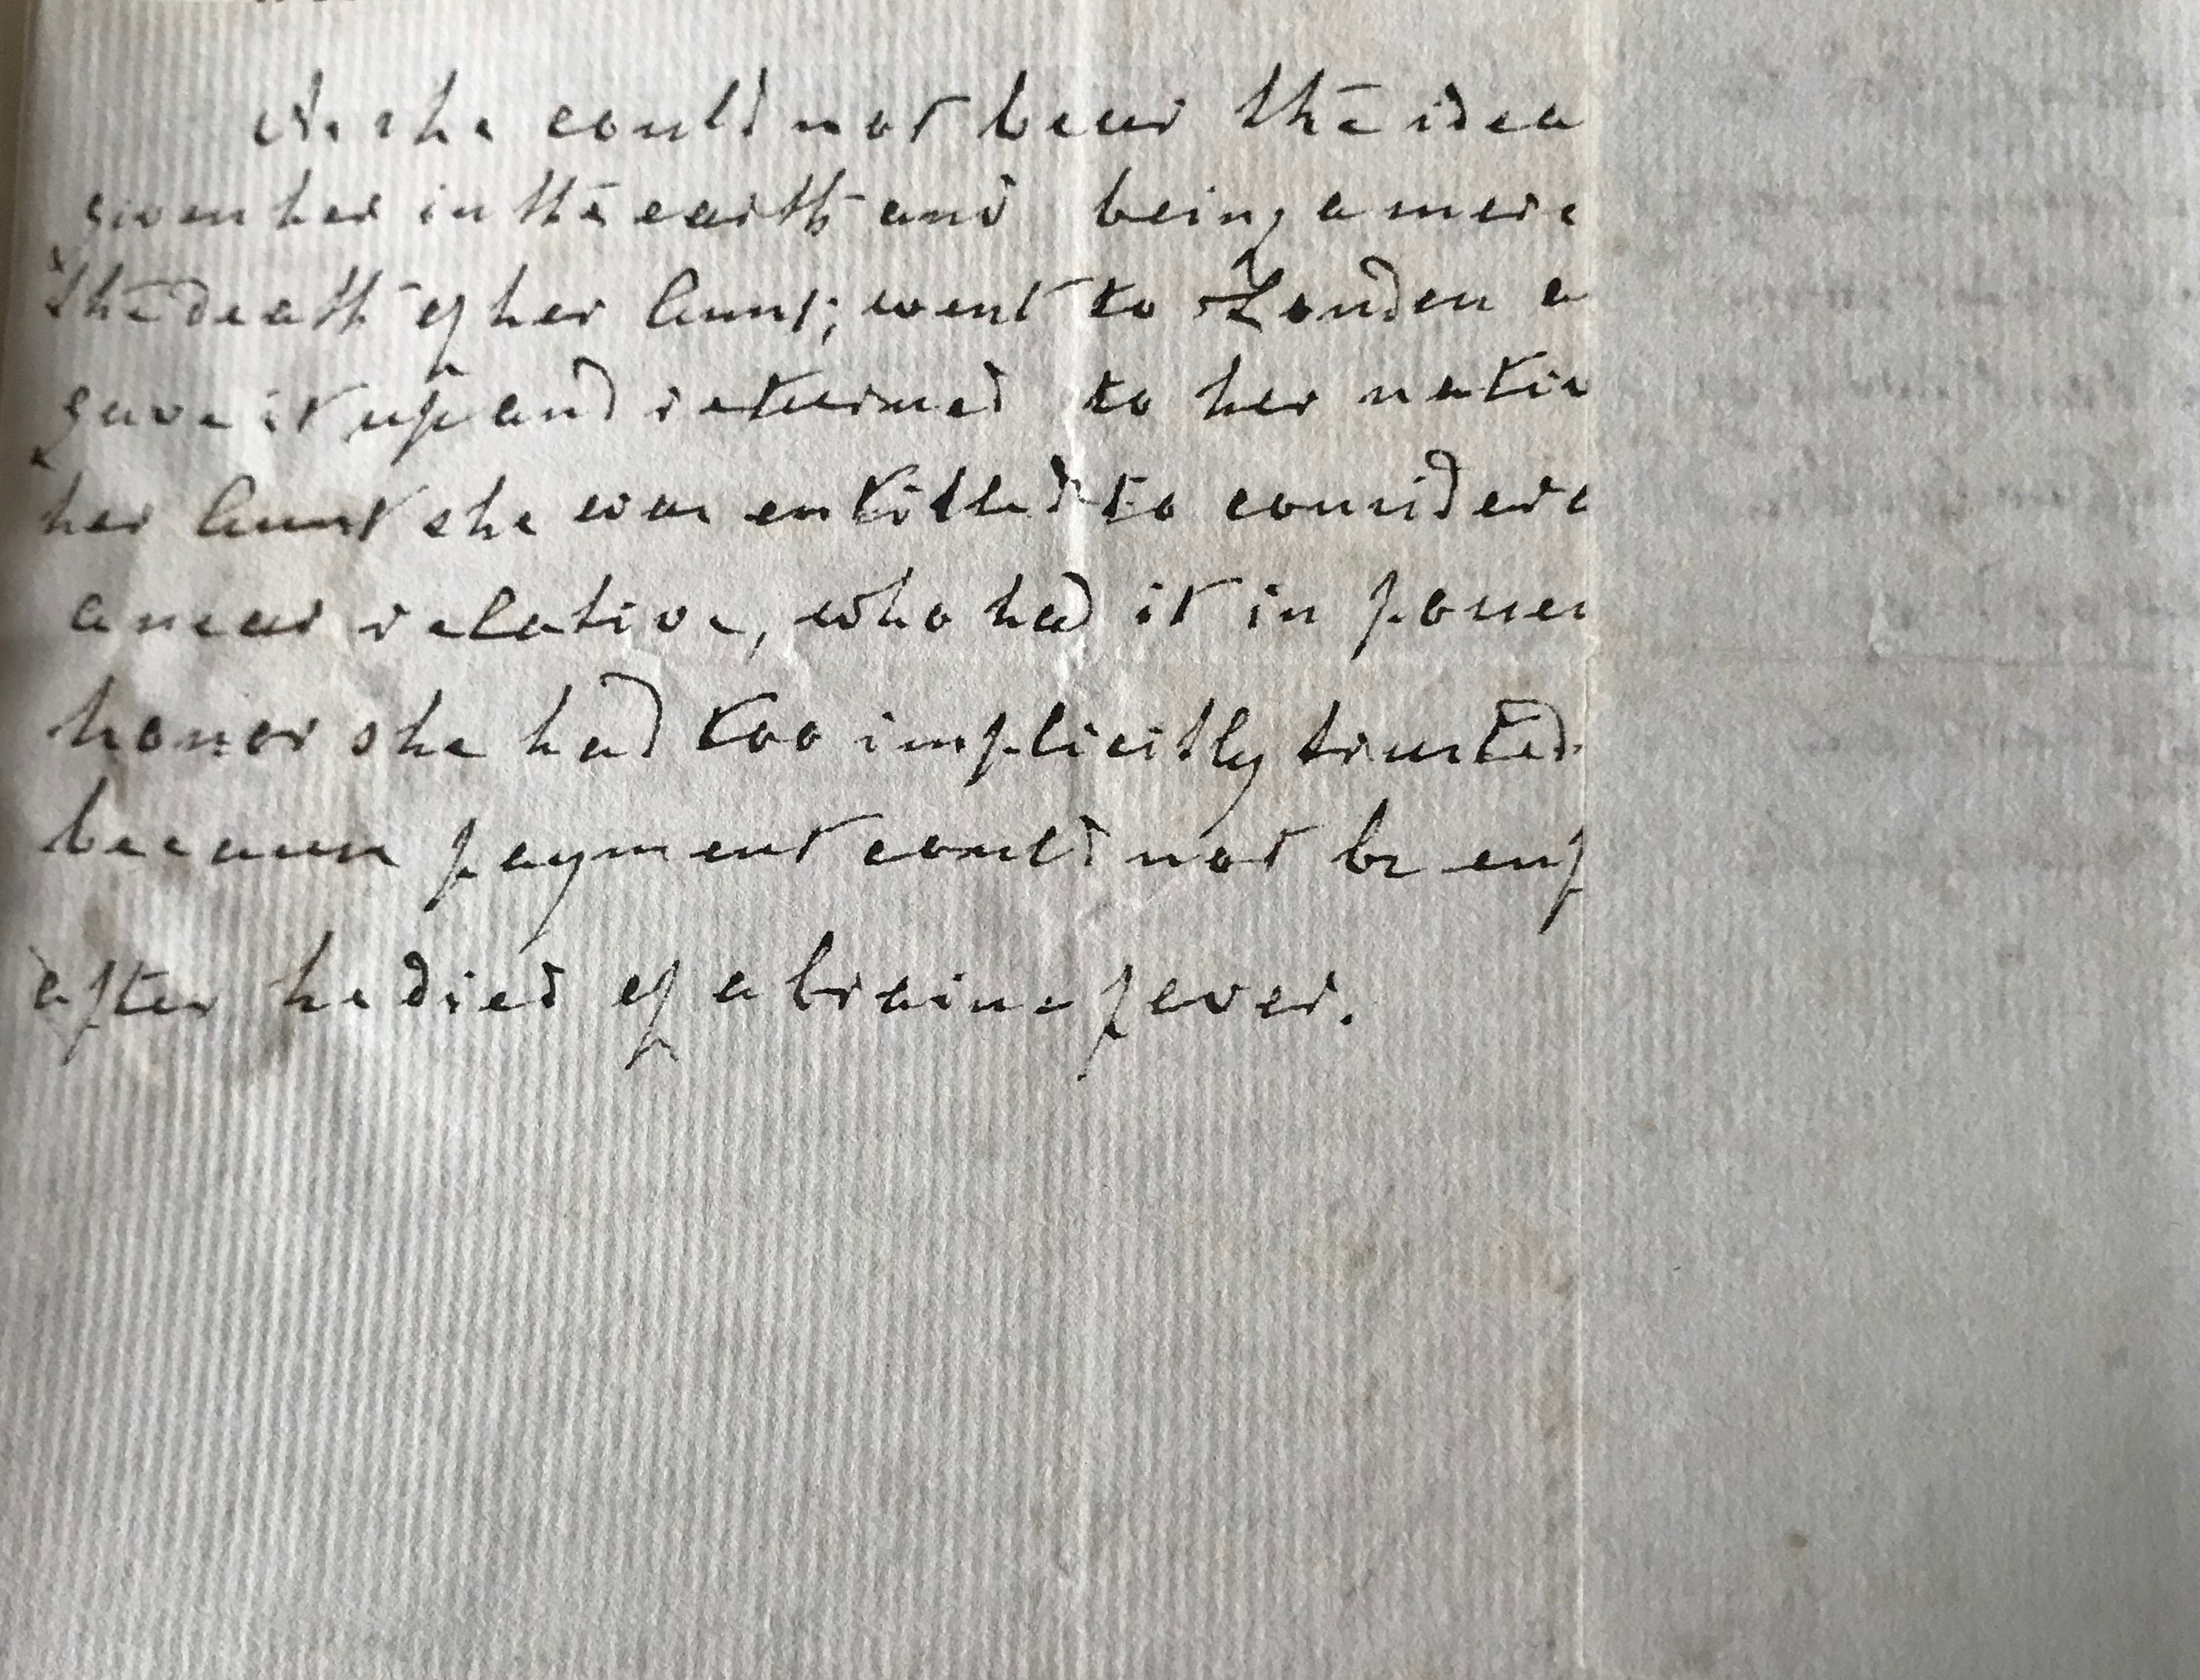 As she could not bear the idea
given her in the earth and being a mere
the death of her Aunt; went to London a
gave it up and returned to her nativ
her Aunt she was entitled to considera
a near relative, who had it in posses
honor she had too implicitly trusted.
because payment could not be enf
after he died of a braine fever.